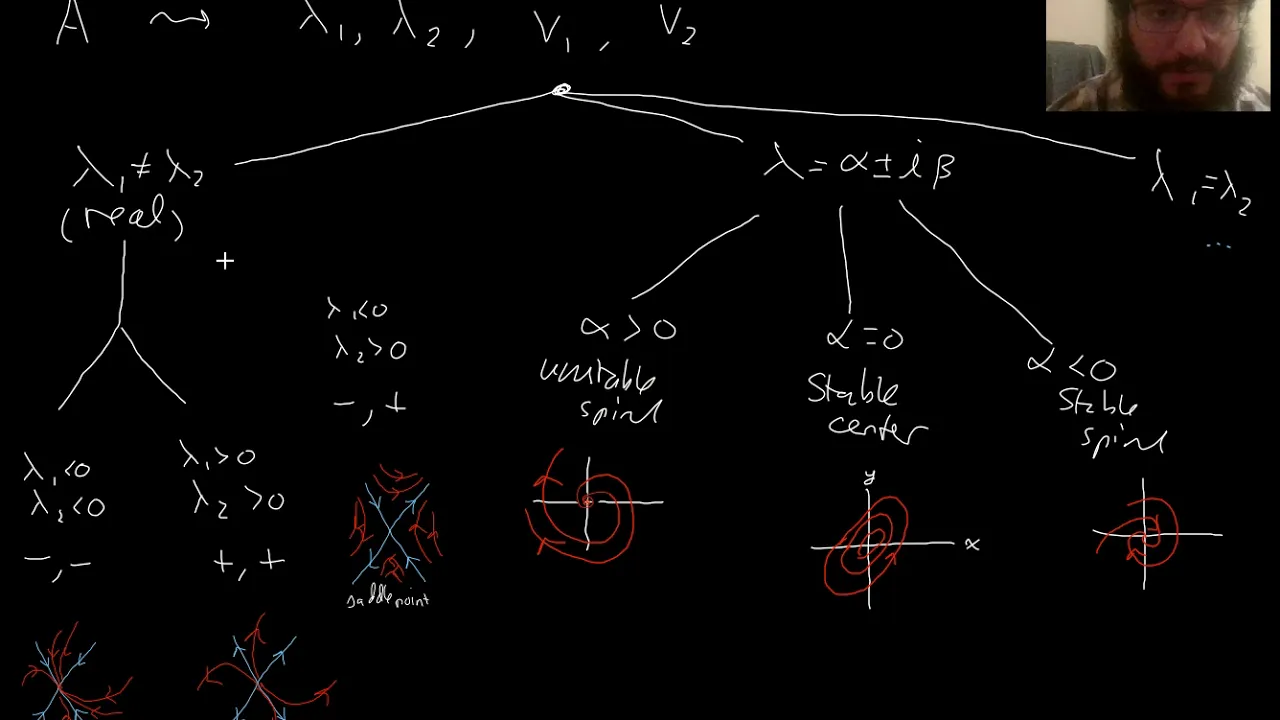 A ⇝ λ₁, λ₂, V₁, V₂
λ₁ ≠ λ₂
(real)
λ = α ± iβ
λ₁ = λ₂
...
λ₁<0
λ₂>0
-, +
α > 0
unstable
spiral
α = 0
Stable
center
α < 0
Stable
spiral
λ₁<0
λ₂<0
-, -
λ₁>0
λ₂>0
+, +
saddle point
y
x